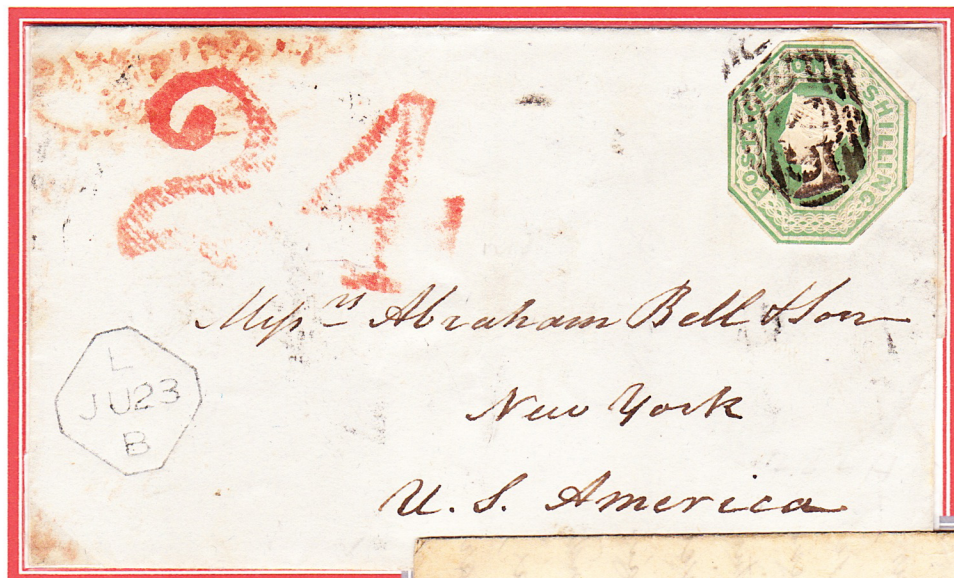 24
POSTAGE ONE SHILLING
Messrs Abraham Bell & Son
New York
U. S. America
L
JU23
B